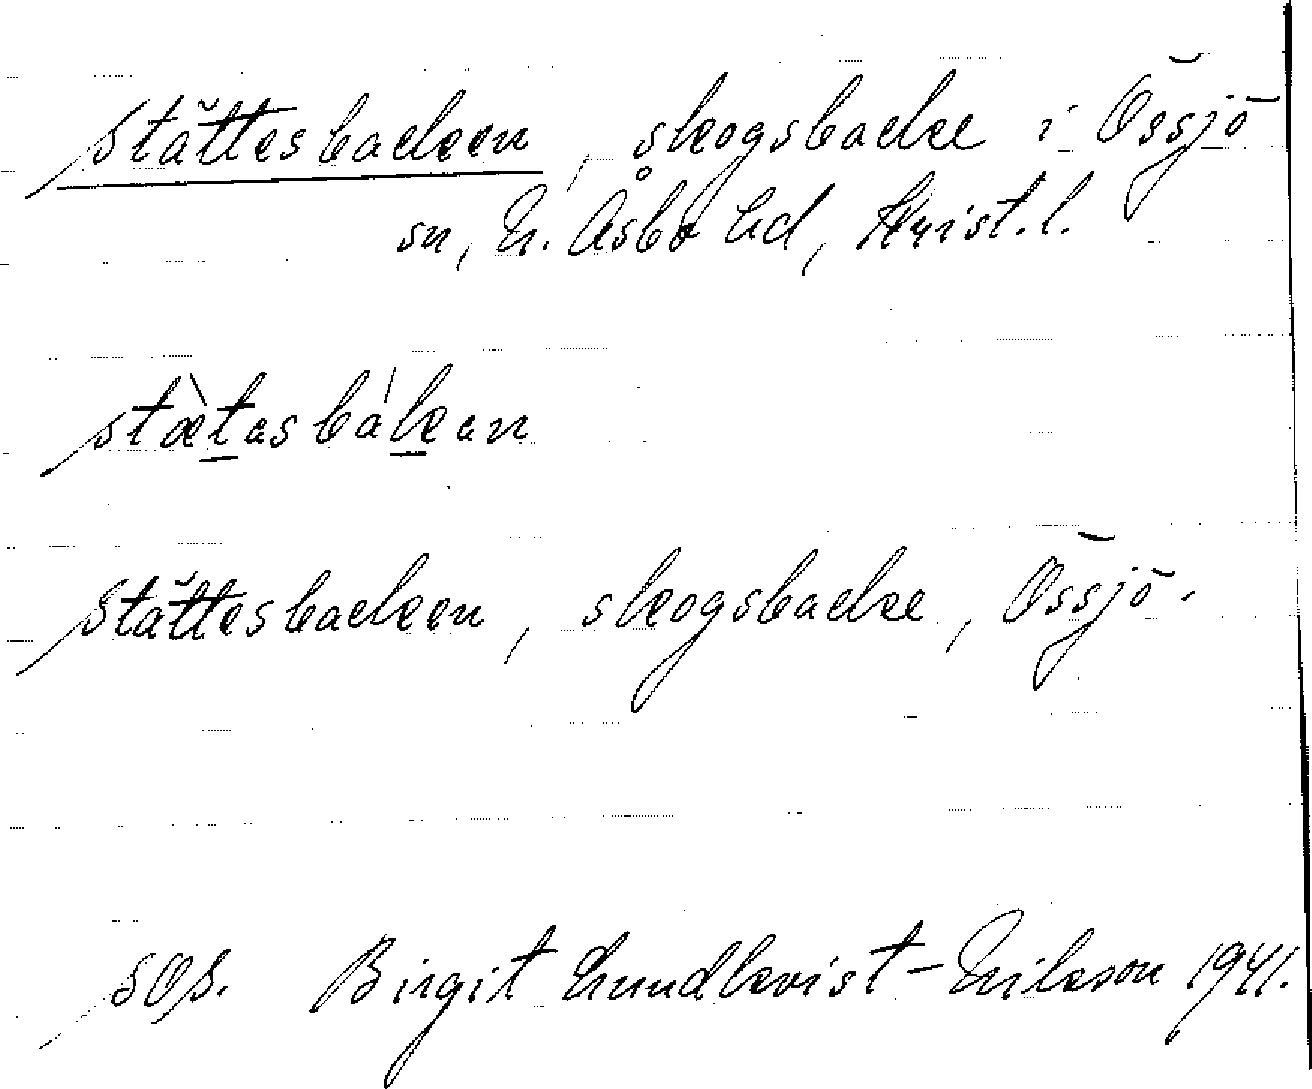 Stättesbacken, skogsbacke i Össjö
sn, N. Åsbo hd, Krist. l.
stæ̀tasbákan
Stättesbacken, skogsbacke, Össjö.
SOS. Birgit Lundkvist-Nilsson 1941.